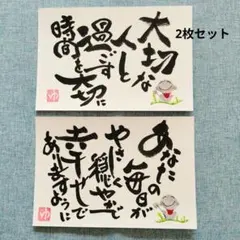 2枚セット
大切な
人と
過ごす
時間を大切に
ゆ
あなたの毎日が
やさしく穏やかで
幸せで
ありますように
ゆ